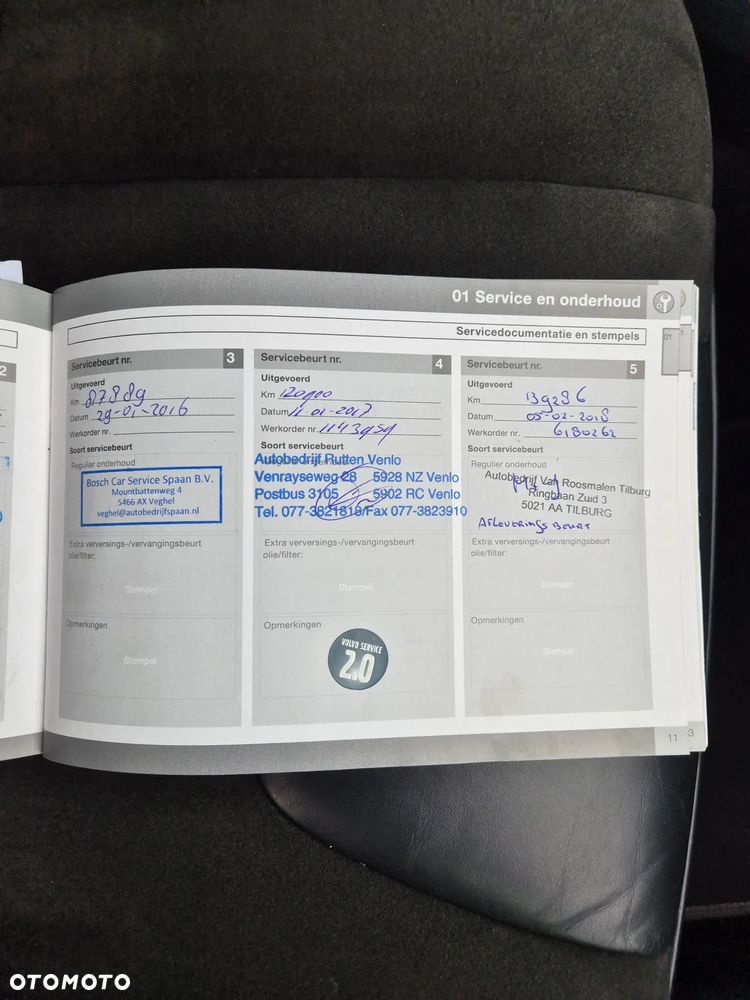 01 Service en onderhoud
Servicedocumentatie en stempels
01
2
Servicebeurt nr. 3
Uitgevoerd
Km 87889
Datum 29-01-2016
Werkorder nr.
Soort servicebeurt
Regulier onderhoud
Bosch Car Service Spaan B.V.
Mountbattenweg 4
5466 AX Veghel
veghel@autobedrijfspaan.nl
Extra verversings-/vervangingsbeurt
olie/filter:
Stempel
Opmerkingen
Stempel
Servicebeurt nr. 4
Uitgevoerd
Km 120900
Datum 11-01-2017
Werkorder nr. 1143959
Soort servicebeurt
Autobedrijf Rutten Venlo
Venrayseweg 28 5928 NZ Venlo
Postbus 3105 5902 RC Venlo
Tel. 077-3821819/Fax 077-3823910
Extra verversings-/vervangingsbeurt
olie/filter:
Stempel
Opmerkingen
VOLVO SERVICE
2.0
Servicebeurt nr. 5
Uitgevoerd
Km 139286
Datum 05-02-2018
Werkorder nr. 6180262
Soort servicebeurt
Regulier onderhoud
Autobedrijf Van Roosmalen Tilburg
Ringbaan Zuid 3
5021 AA TILBURG
Afleverings Beurt
Extra verversings-/vervangingsbeurt
olie/filter:
Stempel
Opmerkingen
Stempel
11
3
OTOMOTO